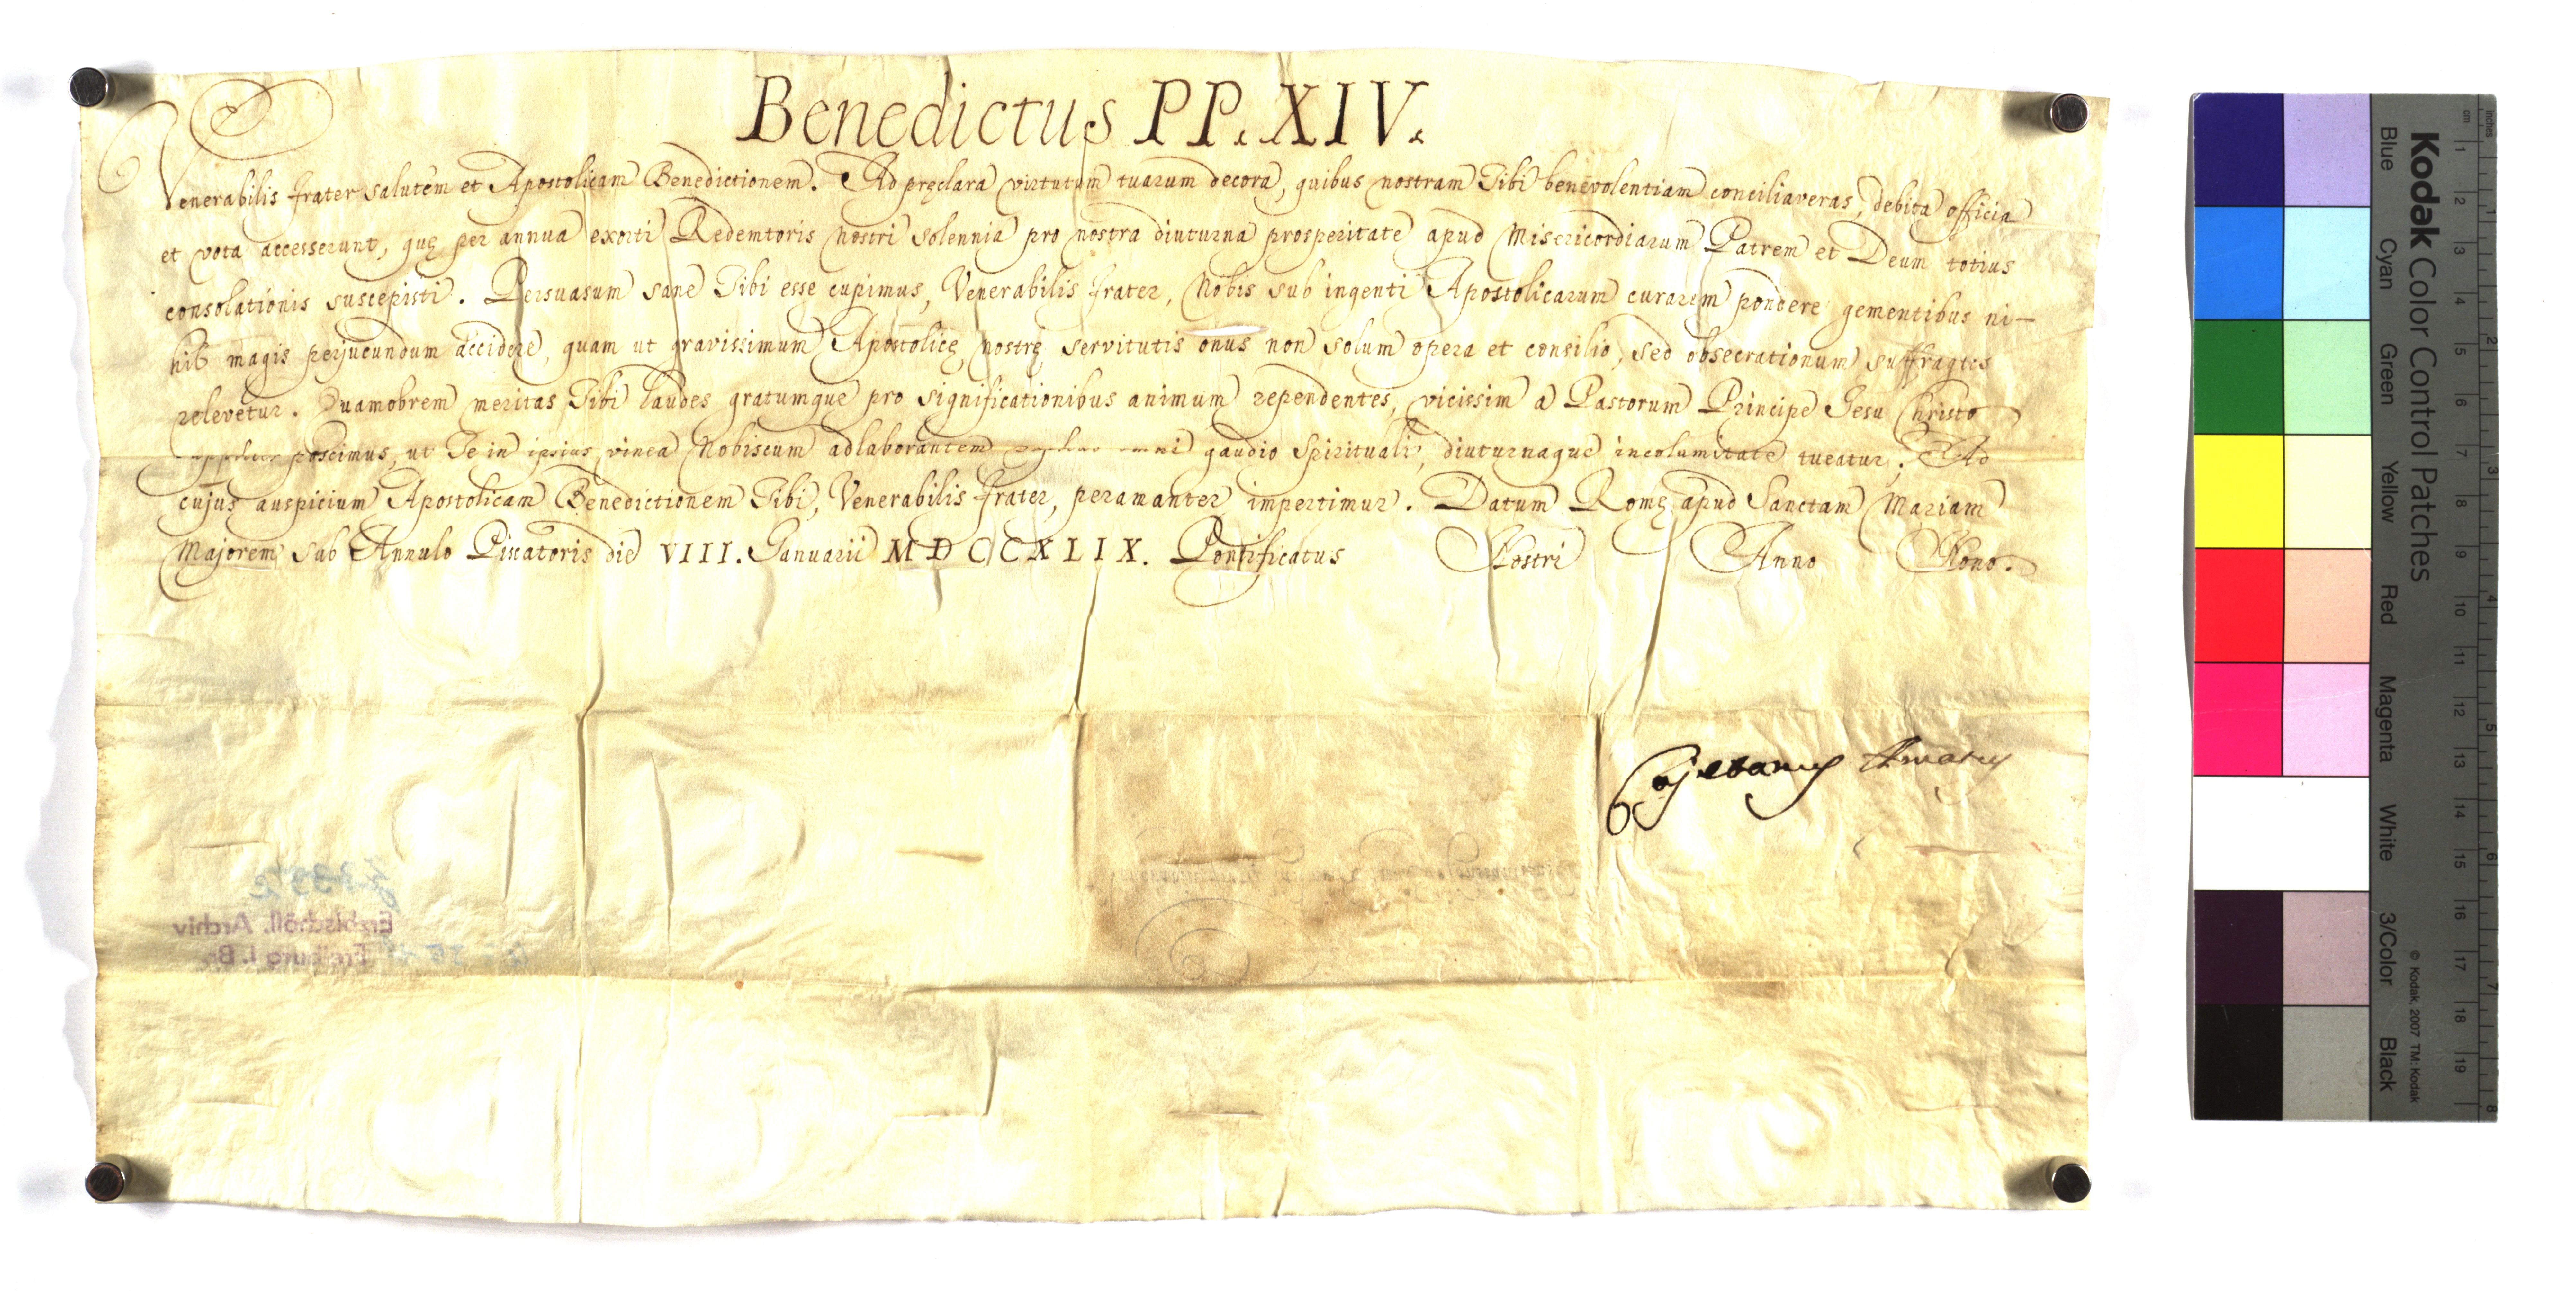 Benedictus PP. XIV.
Venerabilis frater salutem et Apostolicam Benedictionem. Ad pręclara virtutum tuarum decora, quibus nostram Tibi benevolentiam conciliaveras, debita officia
et vota accesserunt, quę per annua exorti Redemtoris Nostri solennia pro nostra diuturna prosperitate apud Misericordiarum Patrem et Deum totius
consolationis suscepisti. Persuasum sane Tibi esse cupimus, Venerabilis frater, Nobis sub ingenti Apostolicarum curarum pondere gementibus ni-
hil magis perjucundum accidere, quam ut gravissimum Apostolicę nostrę servitutis onus non solum opera et consilio, sed obsecrationum suffragiis
relevetur. Quamobrem meritas Tibi laudes gratumque pro significationibus animum rependentes, vicissim a Pastorum Principe Jesu Christo
suppliciter poscimus, ut Te in ipsius vinea Nobiscum adlaborantem omni gaudio spirituali, diuturnaque incolumitate tueatur. Ad
cujus auspicium Apostolicam Benedictionem Tibi, Venerabilis frater, peramanter impertimur. Datum Romę apud Sanctam Mariam
Majorem sub Annulo Piscatoris die VIII. Januarii MDCCXLIX. Pontificatus Nostri Anno Nono.
Cajetanus Amatus
Erzbischöfl. Archiv
Freiburg i. Br.
Kodak Color Control Patches
Blue Cyan Green Yellow Red Magenta White 3/Color Black
© Kodak, 2007 TM: Kodak
cm 1 2 3 4 5 6 7 8 9 10 11 12 13 14 15 16 17 18 19
inches 1 2 3 4 5 6 7 8